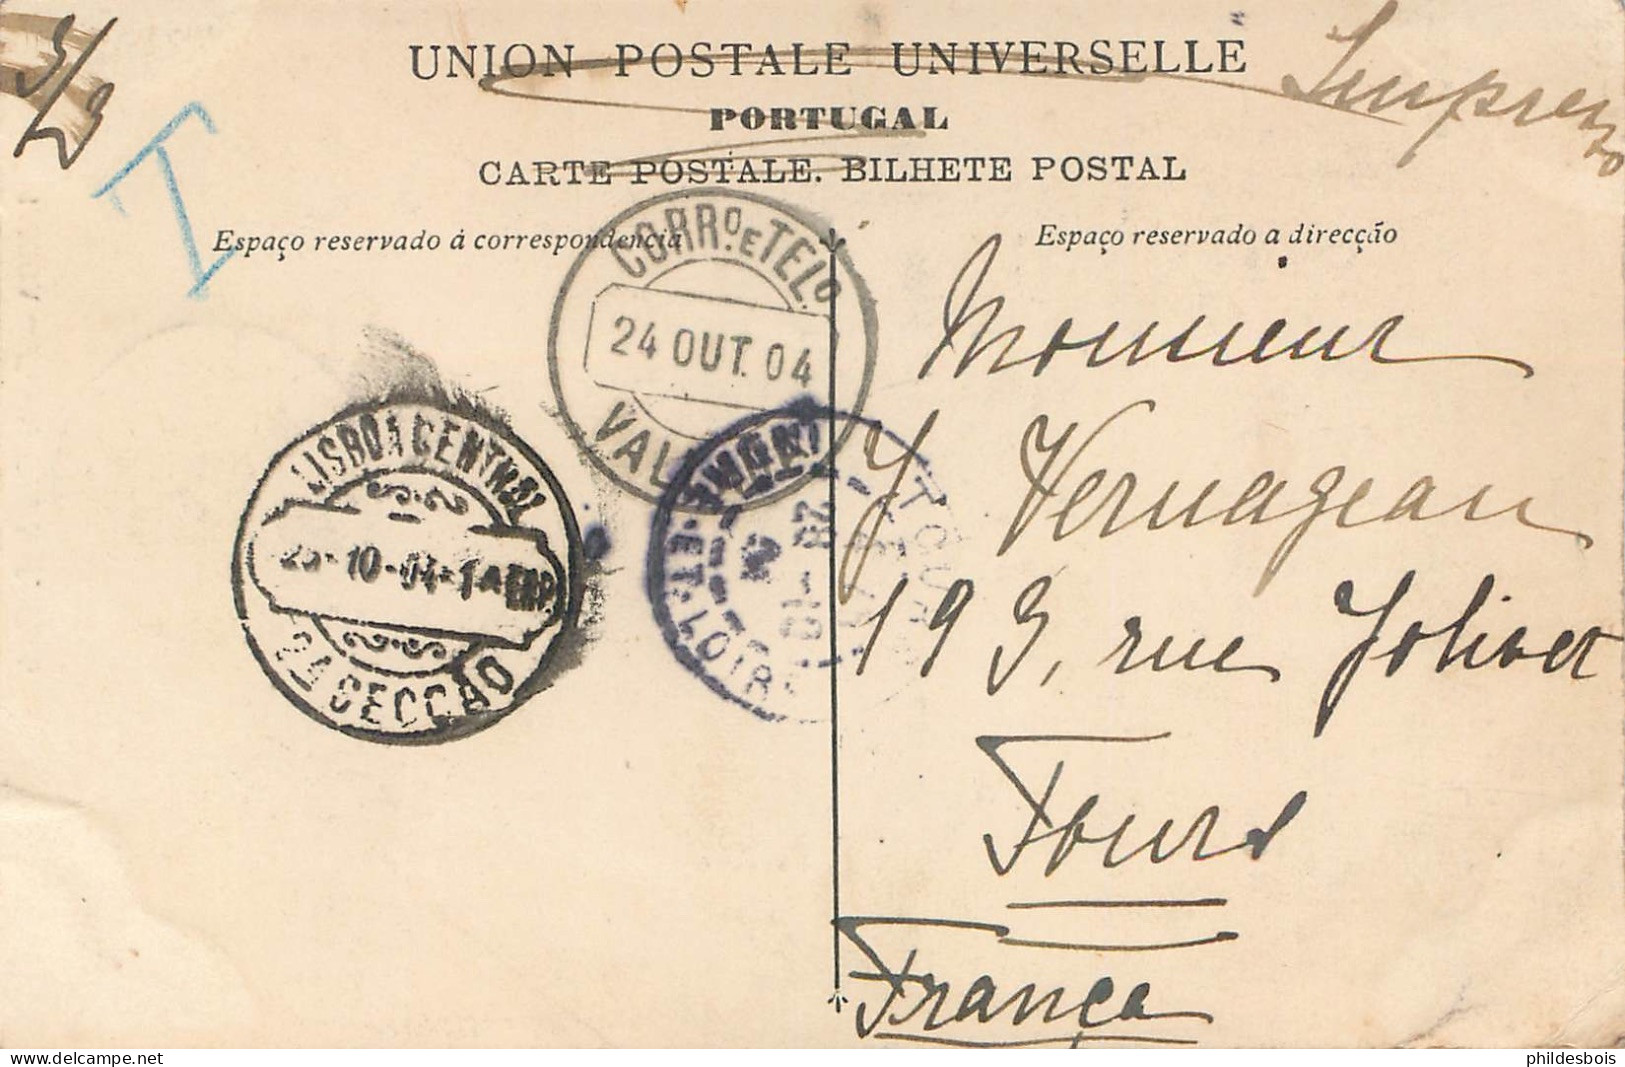 3/3
T
Impresso
UNION POSTALE UNIVERSELLE
PORTUGAL
CARTE POSTALE. BILHETE POSTAL
Espaço reservado á correspondencia
Espaço reservado a direcção
CORRO. E TELO
24 OUT. 04
VAL
LISBOA CENTRAL
25-10-04-1
2A SECÇÃO
TOURS
28
10
ET-LOIRE
Monsieur
J. Vernageau
193, rue Jolivet
Tours
França
phildesbois